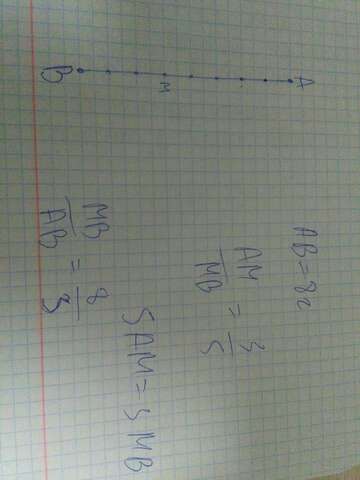 A
AB = 82
AM/MB = 3/5
M
5AM = 3 MB
MB/AB = 8/3
B